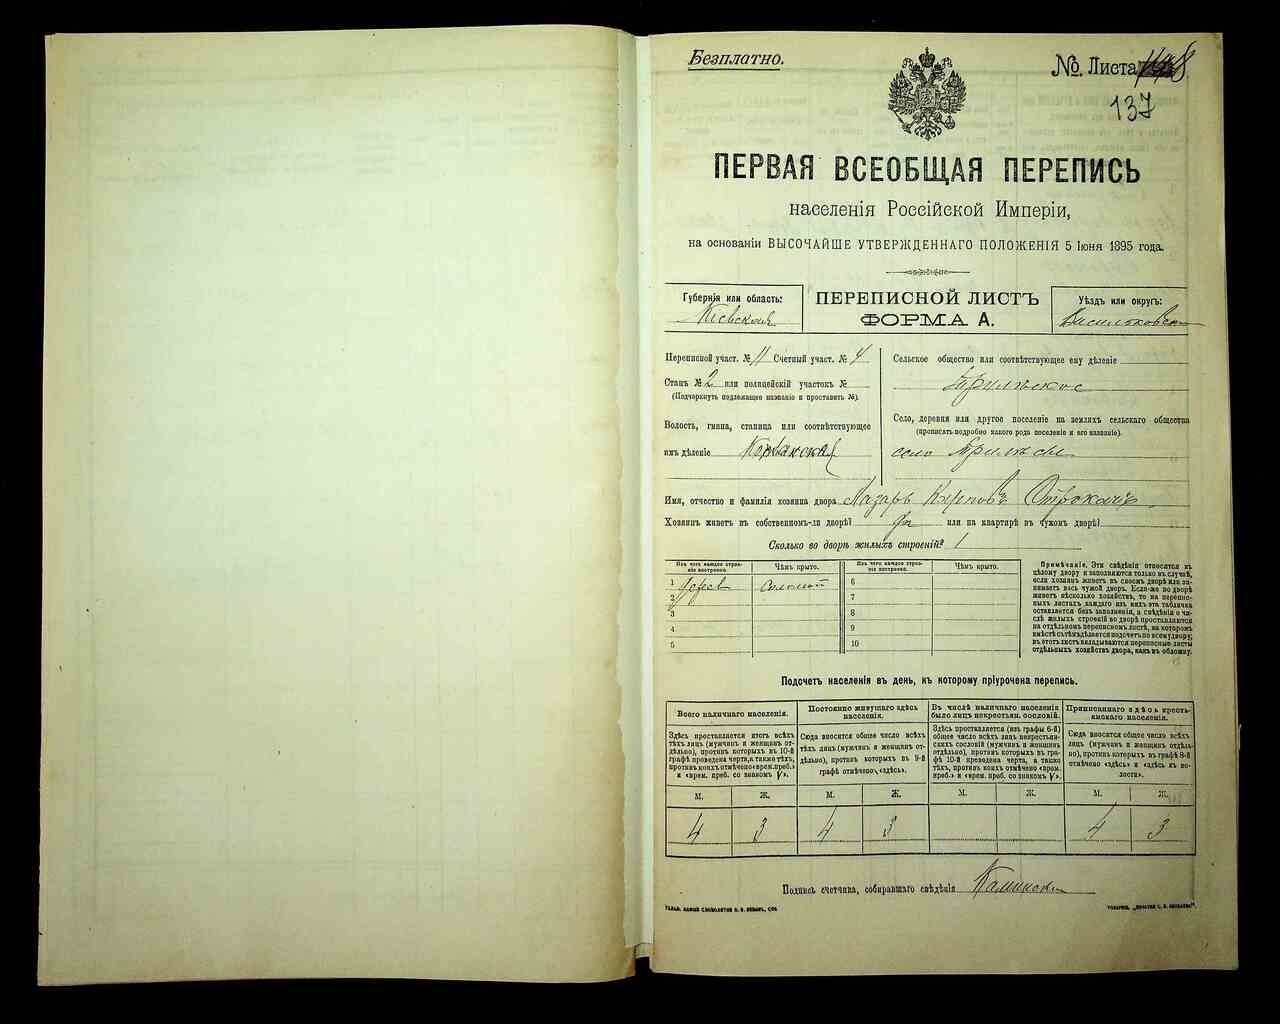 Безплатно.
№. Листа 148
137
ПЕРВАЯ ВСЕОБЩАЯ ПЕРЕПИСЬ
населенія Россійской Имперіи,
на основаніи ВЫСОЧАЙШЕ УТВЕРЖДЕННАГО ПОЛОЖЕНІЯ 5 Іюня 1895 года.
Губернія или область:
Кіевская
ПЕРЕПИСНОЙ ЛИСТЪ
ФОРМА А.
Уѣздъ или округъ:
Васильковск
Переписной участ. № 11 Счетный участ. № 4
Станъ № 2 или полицейскій участокъ №
(Подчеркнуть подлежащее названіе и проставить №).
Волость, гмина, станица или соотвѣтствующее
имъ дѣленіе
Сельское общество или соотвѣтствующее ему дѣленіе
Трилѣское
Село, деревня или другое поселеніе на земляхъ сельскаго общества
(прописать подробно какого рода поселеніе и его названіе).
село Трилѣсы
Имя, отчество и фамилія хозяина двора Назаръ Карповъ Отрокачъ
Хозяинъ живетъ въ собственномъ-ли дворѣ? Да или на квартирѣ въ чужомъ дворѣ?
Сколько во дворѣ жилыхъ строеній? 1
Изъ чего каждое строеніе построено.
Чѣмъ крыто.
Изъ чего каждое строеніе построено.
Чѣмъ крыто.
1 дерев соломой 6
2 7
3 8
4 9
5 10
Примѣчаніе. Эти свѣдѣнія относятся къ
цѣлому двору и заполняются только въ случаѣ,
если хозяинъ живетъ въ своемъ дворѣ или занимаетъ
весь чужой дворъ. Если-же во дворѣ
живетъ нѣсколько хозяйствъ, то на переписныхъ
листахъ каждаго изъ нихъ эта табличка
оставляется безъ заполненія, а свѣдѣнія о числѣ
жилыхъ строеній во дворѣ проставляются
на отдѣльномъ переписномъ листѣ, на которомъ
вмѣстѣ съ тѣмъ дѣлается подсчетъ по всему двору;
въ этотъ листъ вкладываются переписные листы
отдѣльныхъ хозяйствъ двора, какъ въ обложку.
Подсчетъ населенія въ день, къ которому пріурочена перепись.
Всего наличнаго населенія.
Здѣсь проставляется итогъ всѣхъ
тѣхъ лицъ (мужчинъ и женщинъ отдѣльно),
противъ которыхъ въ 10-й
графѣ проведена черта, а также тѣхъ,
противъ коихъ отмѣчено «врем. преб.»
и «врем. преб. со знакомъ V».
Постоянно живущаго здѣсь
населенія.
Сюда вносится общее число всѣхъ
тѣхъ лицъ (мужчинъ и женщинъ отдѣльно),
противъ которыхъ въ 9-й
графѣ отмѣчено, «здѣсь».
Въ числѣ наличнаго населенія
было лицъ некрестьян. сословій.
Здѣсь проставляется (изъ графы 6-й)
общее число всѣхъ лицъ некрестьянскихъ
сословій (мужчинъ и женщинъ
отдѣльно), противъ которыхъ въ графѣ
10-й проведена черта, а также
тѣхъ, противъ коихъ отмѣчено «врем.
преб.» и «врем. преб. со знакомъ V».
Приписаннаго здѣсь крестьянскаго
населенія.
Сюда вносится общее число всѣхъ
лицъ (мужчинъ и женщинъ отдѣльно),
противъ которыхъ въ графѣ 8-й
отмѣчено «здѣсь» и «здѣсь въ волости».
М. Ж. М. Ж. М. Ж. М. Ж.
4 3 4 3 4 3
Подпись счетчика, собиравшаго свѣдѣнія